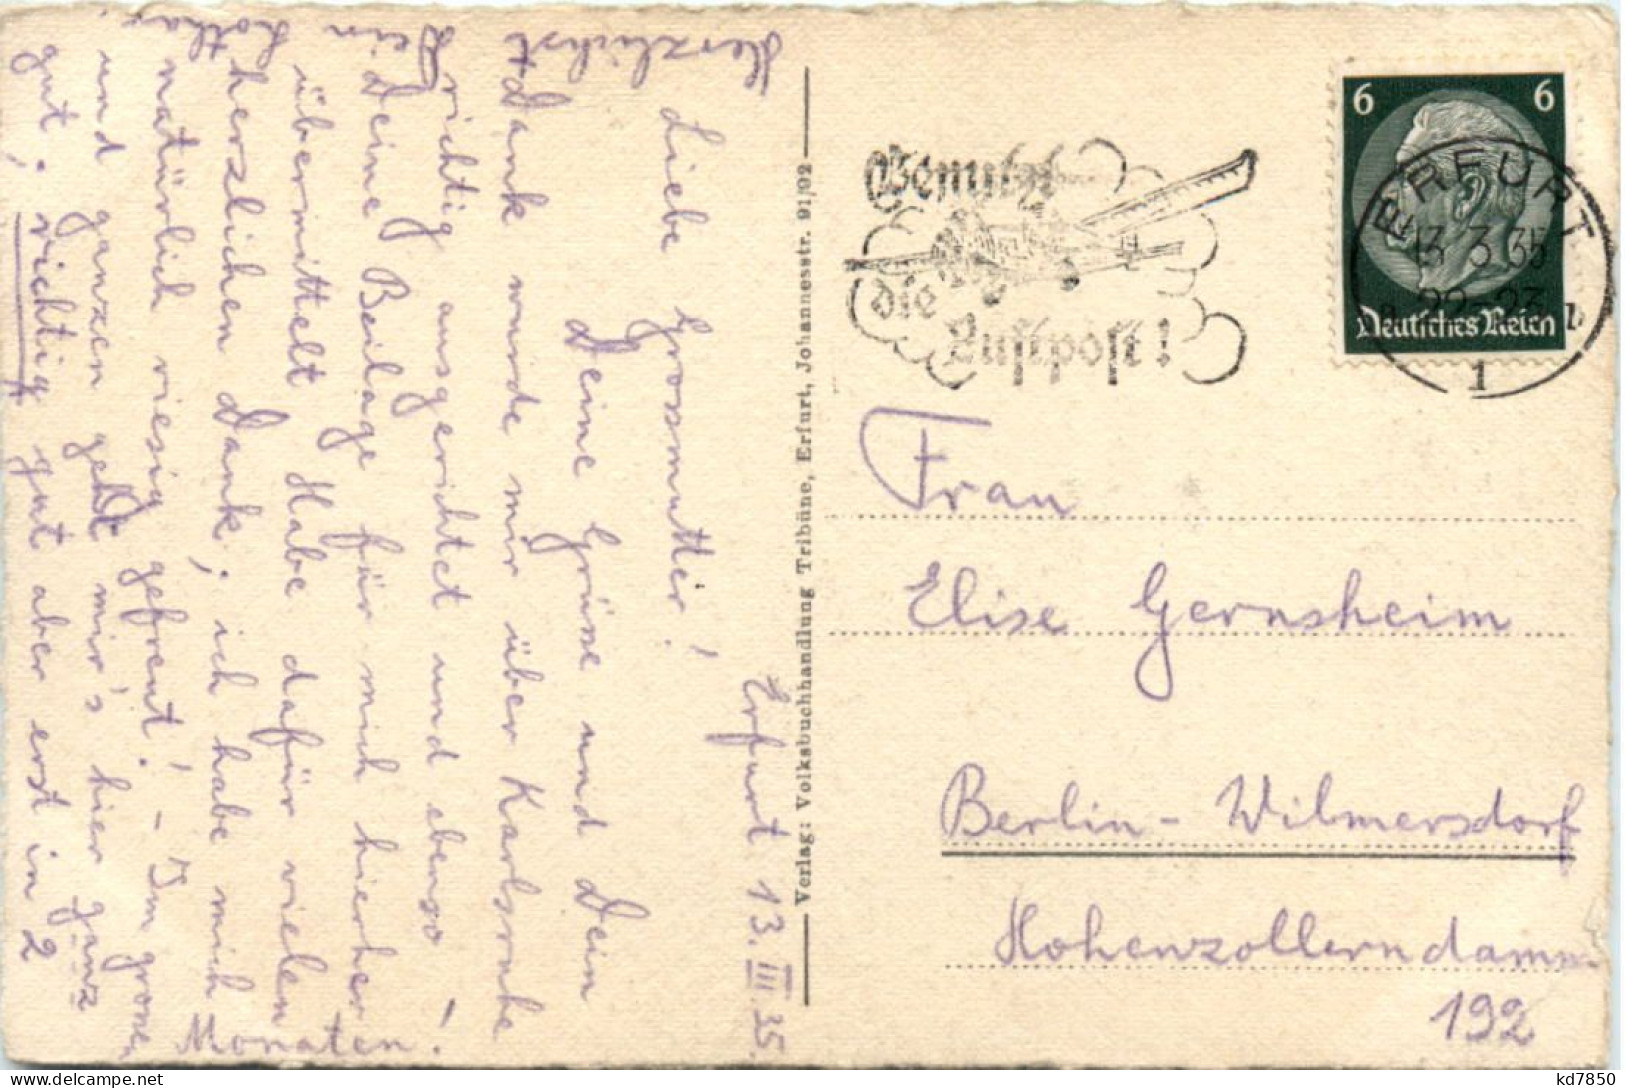 Erfurt 13.III.35.
Liebe Grossmutter!
Deine Grüsse und Dein
Dank wurde mir über Karlsruhe
richtig ausgerichtet und ebenso
Deine Beilage für mich hierher
übermittelt. Habe dafür vielen
herzlichen Dank; ich habe mich
natürlich riesig gefreut! – Im grossen
und ganzen geht mir's hier ganz
gut; richtig gut aber erst in 2
Monaten.
Herzlichst
Dein
Verlag: Volksbuchhandlung Tribüne, Erfurt, Johannesstr. 91/92
Benutzt
die
Luftpost!
6 6
Deutsches Reich
ERFURT
13.3.35
22-23
1
b
Frau
Elise Gernsheim
Berlin-Wilmersdorf
Hohenzollerndamm
192
kd7850